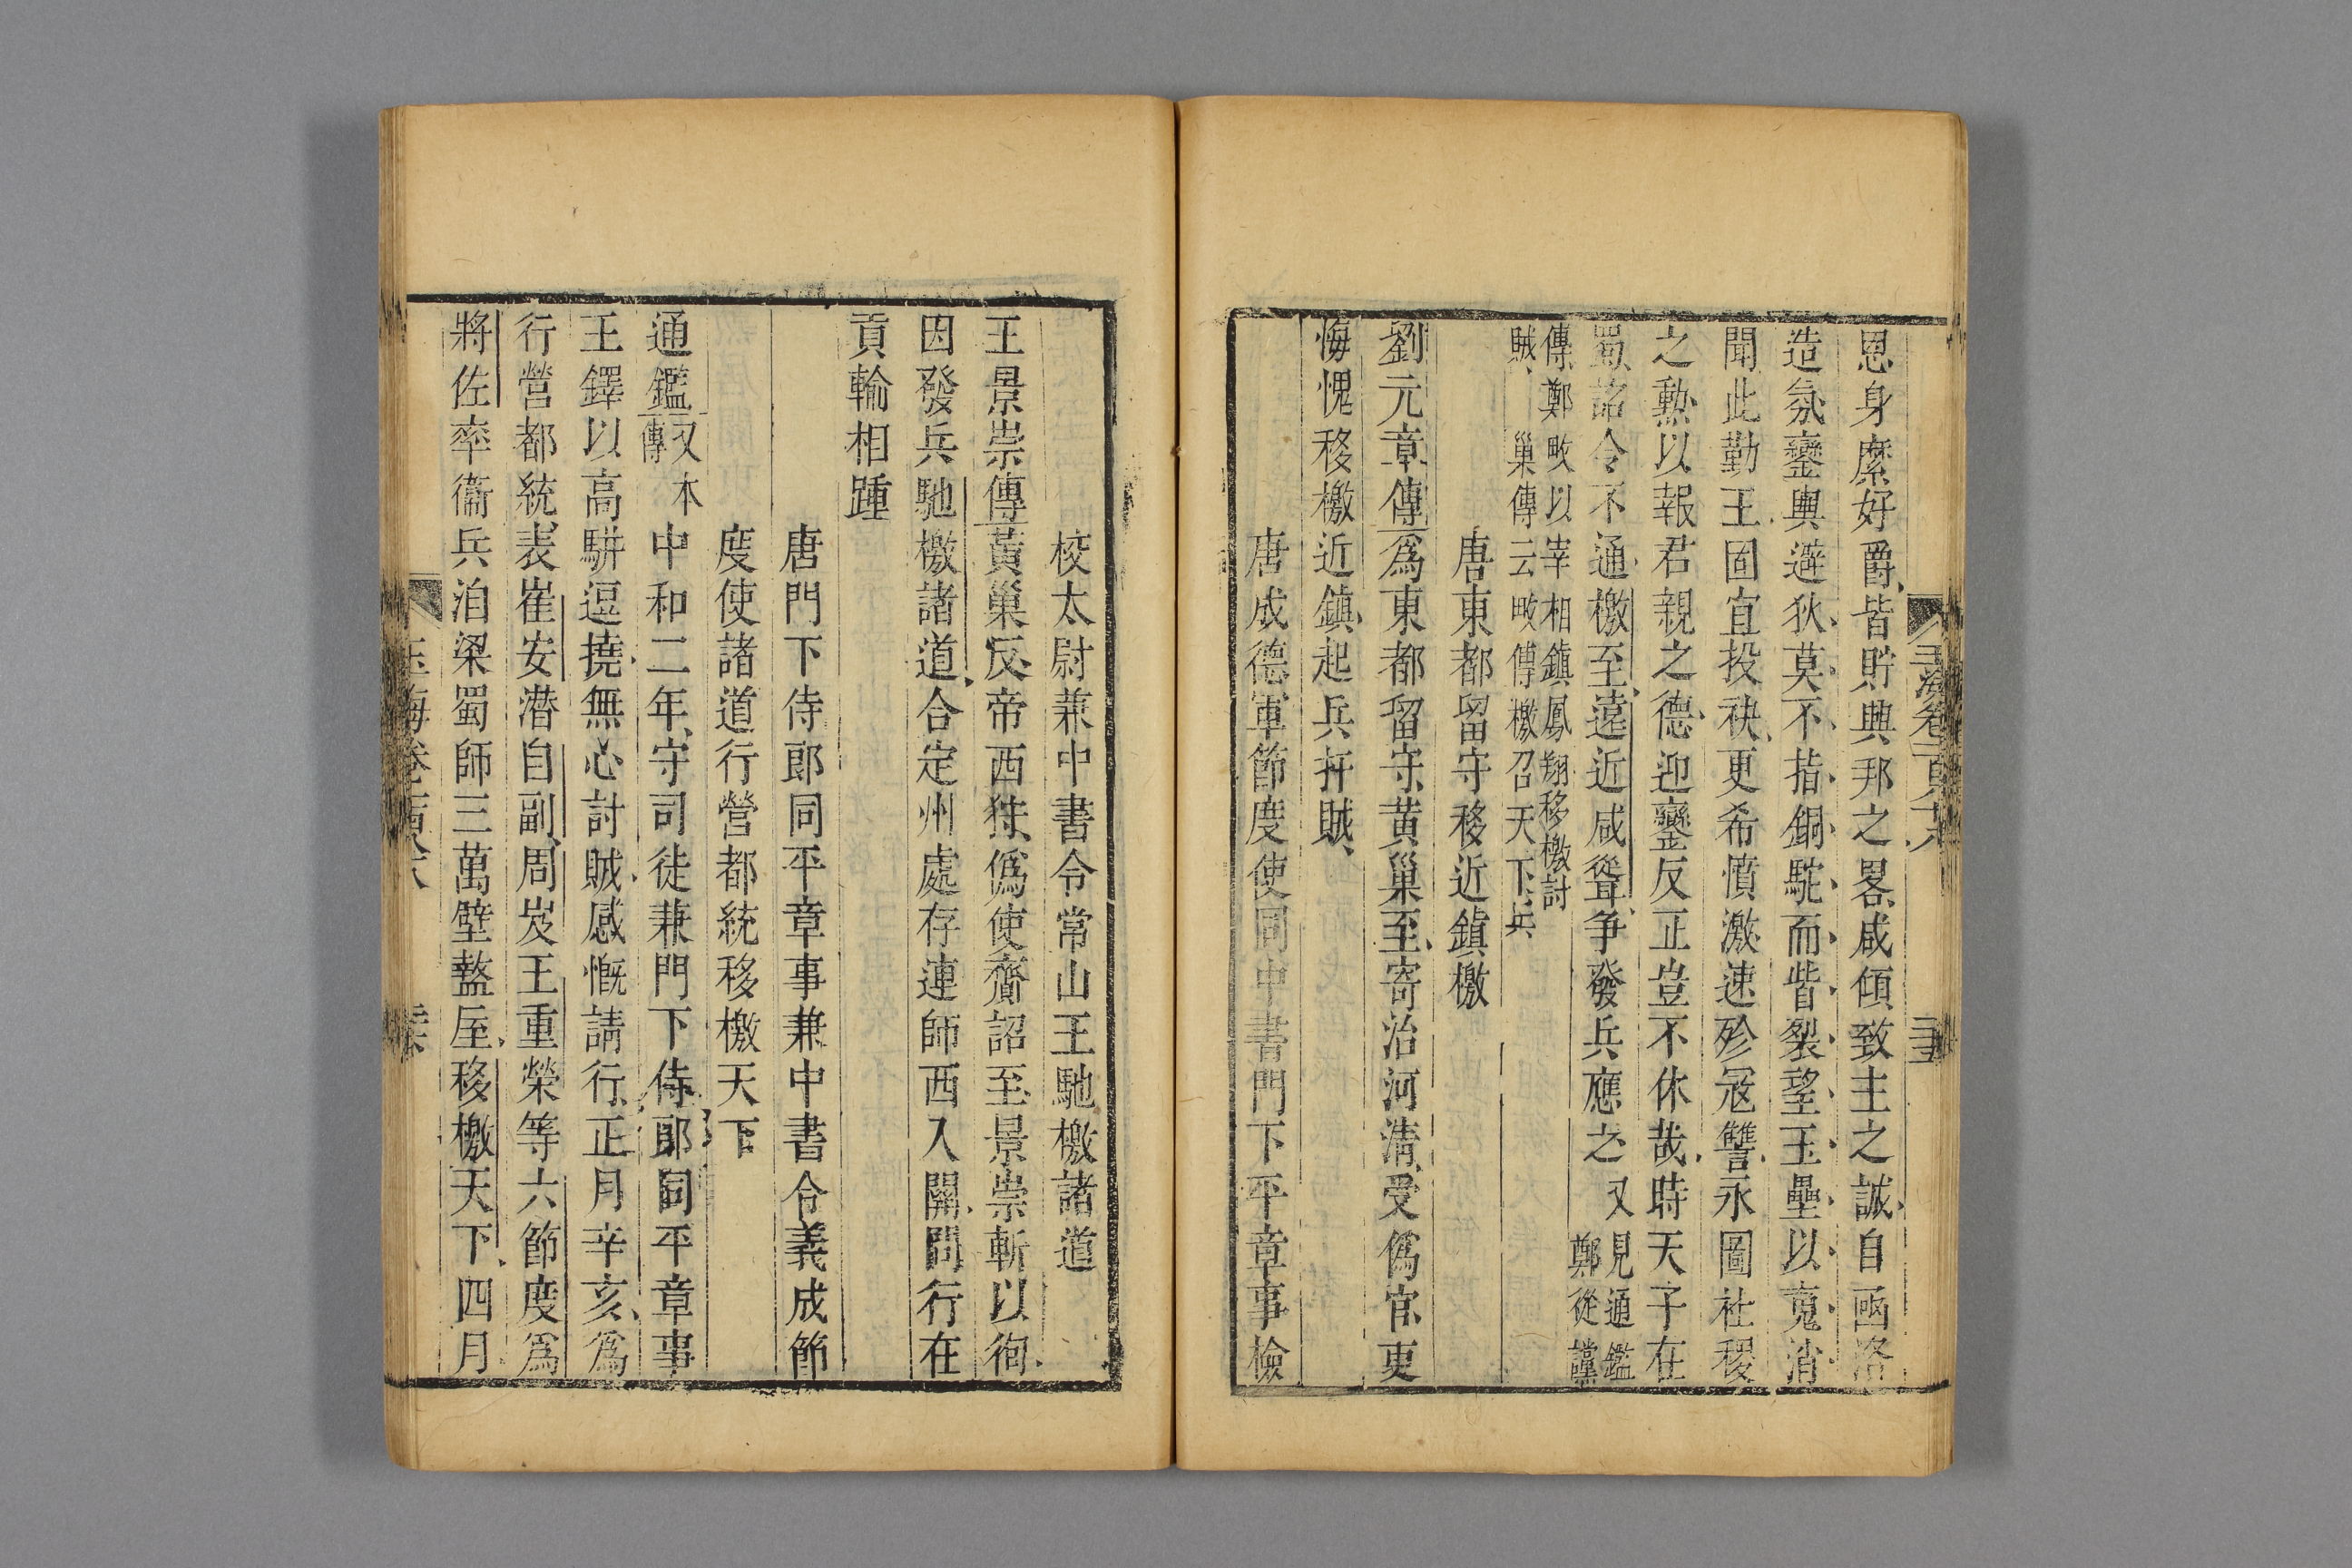 恩身縻好爵皆貯興邦之畧咸傾致主之誠自函洛
造氛鑾輿避狄莫不指銅駝而眥裂望玉壘以䰟消
聞此勤王固宜投袂更希憤激速殄冦讐永圖社稷
之勲以報君親之德迎鑾反正豈不休哉時天子在
蜀詔令不通檄至遠近咸聳争發兵應之 又見通鑑鄭從讜
傳鄭畋以宰相鎮鳳翔移檄討
賊 巢傳云畋傳檄召天下兵
唐東都留守移近鎮檄
劉元章傳爲東都留守黄巢至寄治河清受僞官更
悔愧移檄近鎮起兵扞賊
唐成德軍節度使同中書門下平章事檢
校太尉兼中書令常山王馳檄諸道
王景崇傳黃巢反帝西狩僞使齎詔至景崇斬以徇
因發兵馳檄諸道合定州處存連師西入關問行在
貢輸相踵
唐門下侍郎同平章事兼中書令義成節
度使諸道行營都統移檄天下
通鑑又本傳 中和二年守司徒兼門下侍郎同平章事
王鐸以高駢逗撓無心討賊感慨請行正月辛亥爲
行營都統表崔安潛自副周岌王重榮等六節度爲
將佐率衞兵洎梁蜀師三萬壁盩厔移檄天下四月